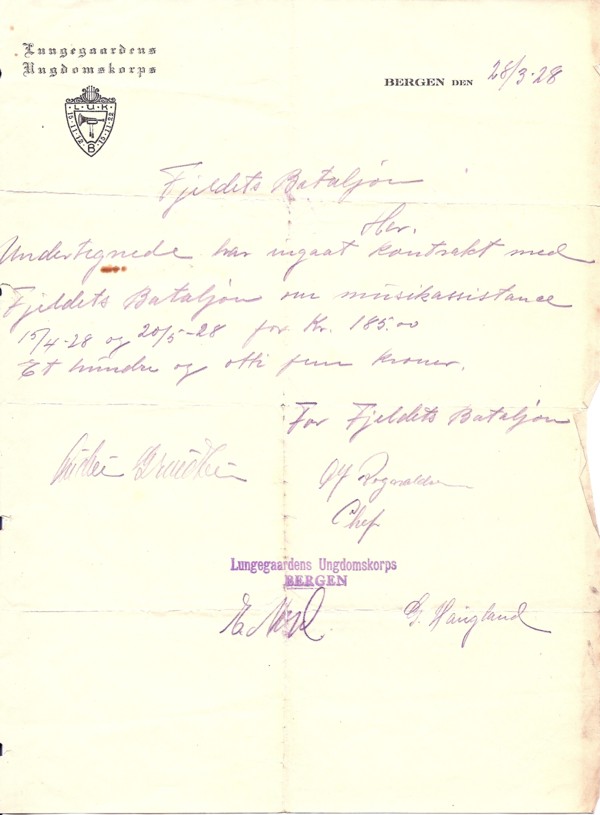 Lungegaardens
Ungdomskorps
L.U.K
15-11-19
B
BERGEN DEN 28/3-28
Fjeldets Bataljon
Her.
Undertegnede har ingaat kontrakt med
Fjeldets Bataljon om musikassistance
15/4-28 og 20/5-28 for Kr. 185.00
Et hundre og otti fem kroner.
For Fjeldets Bataljon
Chef
Lungegaardens Ungdomskorps
BERGEN
G. Haugland